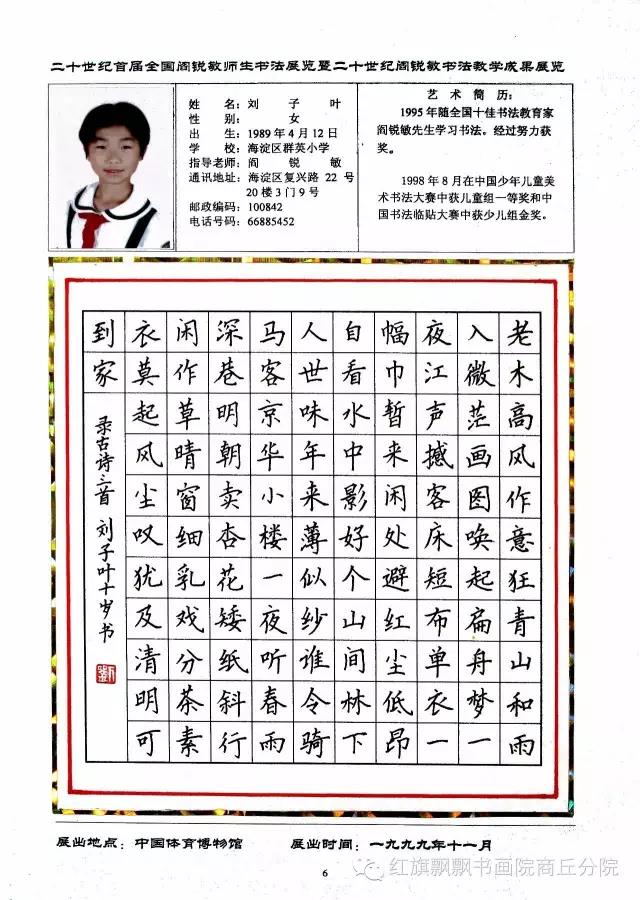 二十世纪首届全国阎锐敏师生书法展览暨二十世纪阎锐敏书法教学成果展览
姓 名：刘 子 叶
性 别： 女
出 生：1989年4月12日
学 校：海淀区群英小学
指导老师：阎 锐 敏
通讯地址：海淀区复兴路 22 号
20楼3门9号
邮政编码：100842
电话号码：66885452
艺 术 简 历：
1995年随全国十佳书法教育家
阎锐敏先生学习书法。经过努力获
奖。
1998年8月在中国少年儿童美
术书法大赛中获儿童组一等奖和中
国书法临贴大赛中获少儿组金奖。
老木高风作意狂青山和雨
入微茫画图唤起扁舟梦一
夜江声撼客床短布单衣一
幅巾暂来闲处避红尘低昂
自看水中影好个山间林下
人世味年来薄似纱谁令骑
马客京华小楼一夜听春雨
深巷明朝卖杏花矮纸斜行
闲作草晴窗细乳戏分茶素
衣莫起风尘叹犹及清明可
到家
录古诗三首 刘子叶十岁书
展出地点：中国体育博物馆 展出时间：一九九九年十一月
红旗飘飘书画院商丘分院
6